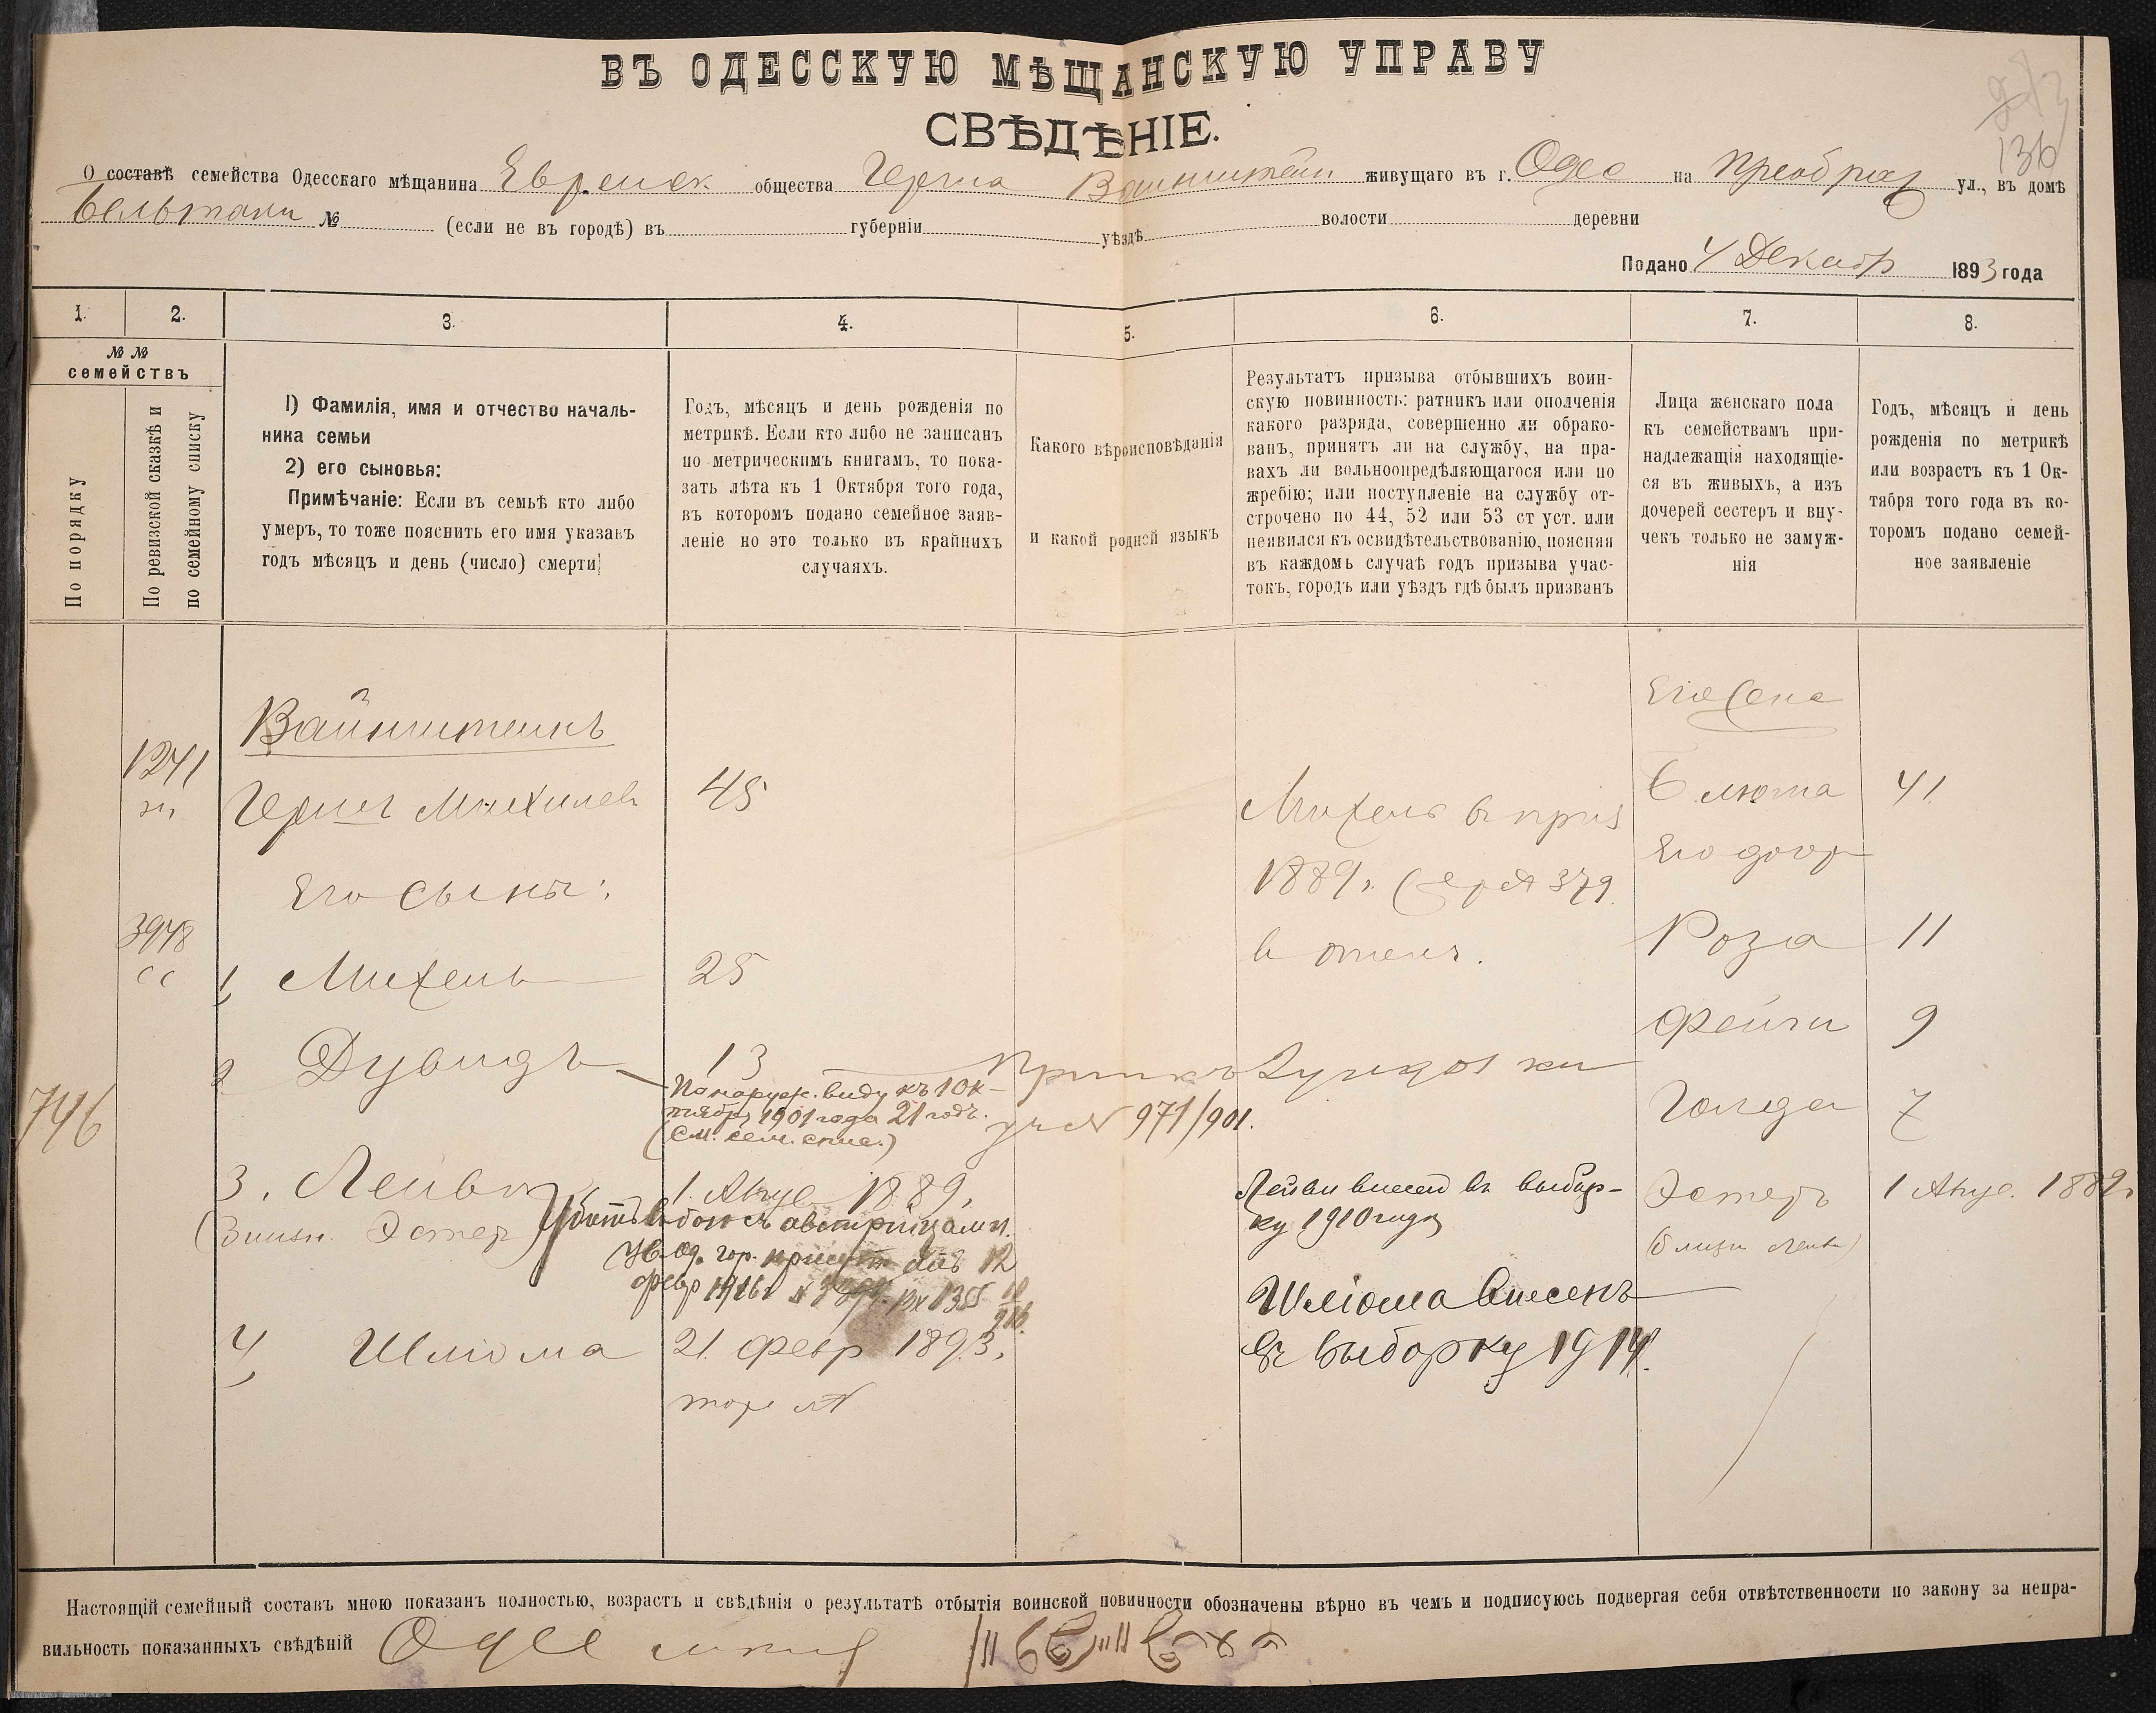 ВЪ ОДЕССКУЮ МѢЩАНСКУЮ УПРАВУ
СВѢДѢНІЕ.
136
О составѣ семейства Одесскаго мѣщанина Еврейск. общества Герша Вайнштейн живущаго въ г. Одес на Преображ ул., въ домѣ
№ (если не въ городѣ) въ губерніи уѣздѣ волости деревни
Подано 4 Декабр 1893 года
1. 2. 3. 4. 5. 6. 7. 8.
№ №
семействъ
По порядку
По ревизской сказкѣ и
по семейному списку
1) Фамилія, имя и отчество началь-
ника семьи
2) его сыновья:
Примѣчаніе: Если въ семьѣ кто либо
умеръ, то тоже пояснить его имя указавъ
годъ мѣсяцъ и день (число) смерти
Годъ, мѣсяцъ и день рожденія по
метрикѣ. Если кто либо не записанъ
по метрическимъ книгамъ, то пока-
зать лѣта къ 1 Октября того года,
въ которомъ подано семейное заяв-
леніе но это только въ крайнихъ
случаяхъ.
Какого вѣроисповѣданія
и какой родной языкъ
Результатъ призыва отбывшихъ воин-
скую повинность: ратникъ или ополченія
какого разряда, совершенно ли обрако-
ванъ, принятъ ли на службу, на пра-
вахъ ли вольноопредѣляющагося или по
жребію; или поступленіе на службу от-
строчено по 44, 52 или 53 ст уст. или
неявился къ освидѣтельствованію, поясняя
въ каждомъ случаѣ годъ призыва учас-
токъ, городъ или уѣздъ гдѣ былъ призванъ
Лица женскаго пола
къ семействамъ при-
надлежащія находящіе-
ся въ живыхъ, а изъ
дочерей сестеръ и вну-
чекъ только не замуж-
нія
Годъ, мѣсяцъ и день
рожденія по метрикѣ
или возрастъ къ 1 Ок-
тября того года въ ко-
торомъ подано семей-
ное заявленіе
Вайнштейнъ
1241
Герш Михилев 45
Его Сыны:
3948
1, Михель 25
2 Дувидъ 13
По наруж. виду къ 1 Ок-
тября 1901 года 21 годъ.
(См. сем. спис.)
№ 971/901.
746
3. Лейви 1. Авгус 1889,
(Близн. Эстер) Убитъ въ бою съ австрійцами.
Ув. Од. гор. присут. отъ 12
февр 1916 г
4, Шліома 21. февр 1893,
тоже №
Михель в приз
1889 г.
Лейви внесен въ выбор-
ку 1910 года
Шліома внесенъ
въ выборку 1914.
Его Жена
Блюма 41
Его дочер
Роза 11
Фейги 9
Голда 7
Эстеръ 1 Авгус. 1889
(близн Лейви)
Настоящій семейный составъ мною показанъ полностью, возрастъ и свѣдѣнія о результатѣ отбытія воинской повинности обозначены вѣрно въ чемъ и подписуюсь подвергая себя отвѣтственности по закону за непра-
вильность показанныхъ свѣдѣній